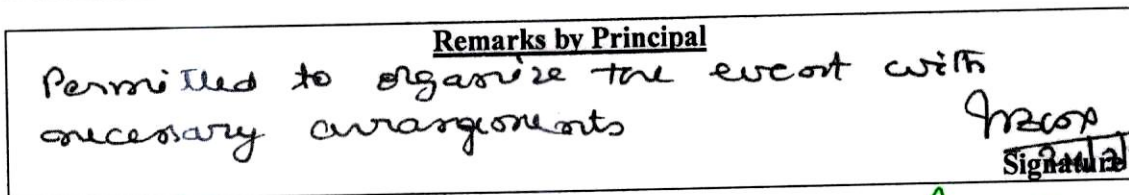 Remarks by Principal
Permitted to organize the event with
necessary arrangements
Signature